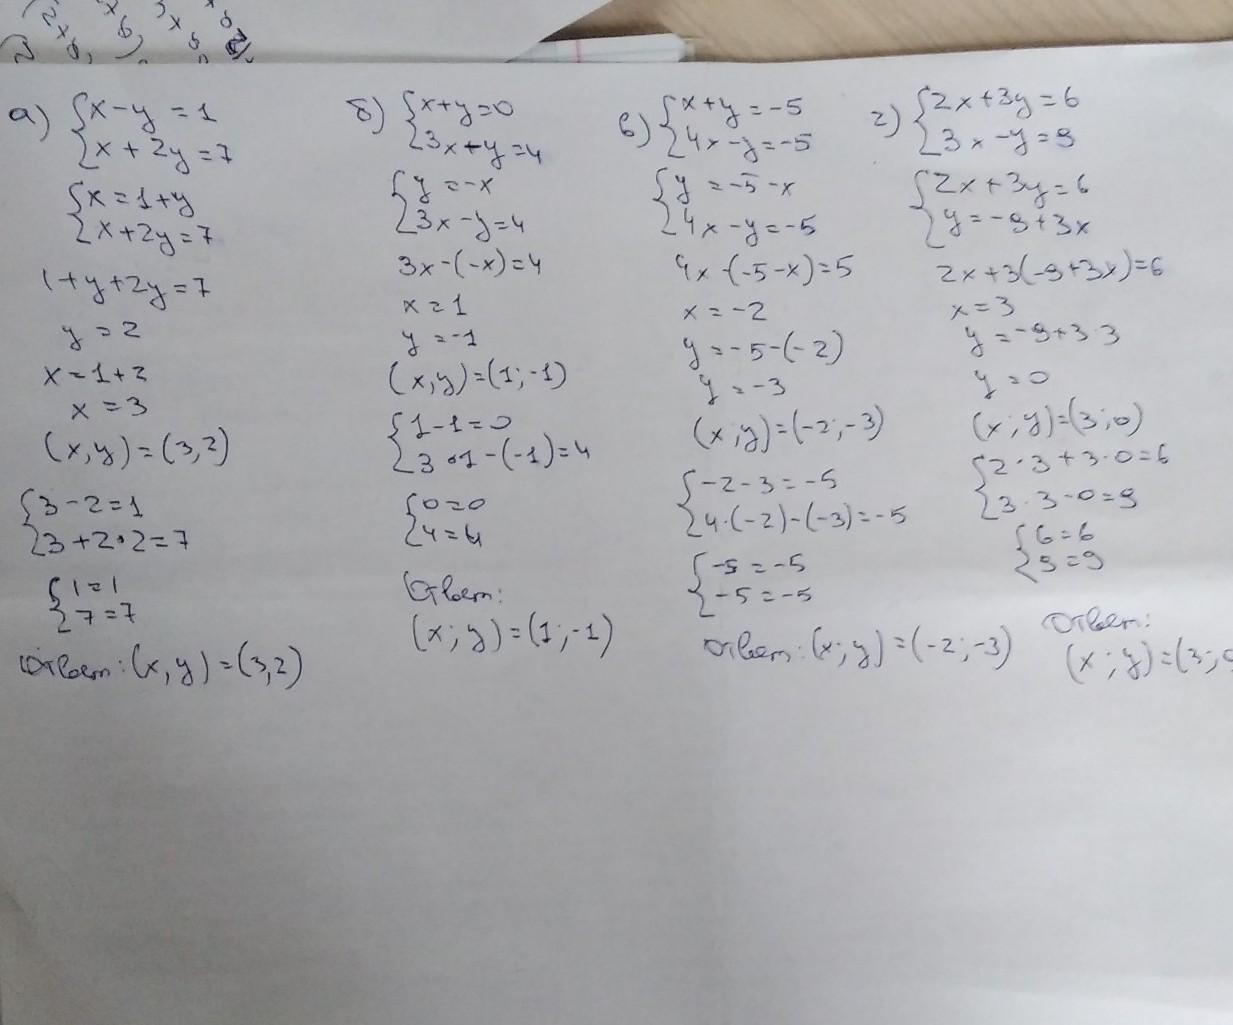 а) {x-y=1
{x+2y=7
{x=1+y
{x+2y=7
1+y+2y=7
y=2
x=1+2
x=3
(x,y)=(3,2)
{3-2=1
{3+2•2=7
{1=1
{7=7
Ответ: (x,y)=(3,2)
б) {x+y=0
{3x+y=4
{y=-x
{3x-y=4
3x-(-x)=4
x=1
y=-1
(x,y)=(1;-1)
{1-1=0
{3•1-(-1)=4
{0=0
{4=4
Ответ:
(x;y)=(1;-1)
в) {x+y=-5
{4x-y=-5
{y=-5-x
{4x-y=-5
4x-(-5-x)=5
x=-2
y=-5-(-2)
y=-3
(x;y)=(-2;-3)
{-2-3=-5
{4·(-2)-(-3)=-5
{-5=-5
{-5=-5
Ответ: (x;y)=(-2;-3)
г) {2x+3y=6
{3x-y=9
{2x+3y=6
{y=-9+3x
2x+3(-9+3x)=6
x=3
y=-9+3·3
y=0
(x;y)=(3;0)
{2·3+3·0=6
{3·3-0=9
{6=6
{9=9
Ответ:
(x;y)=(3;0